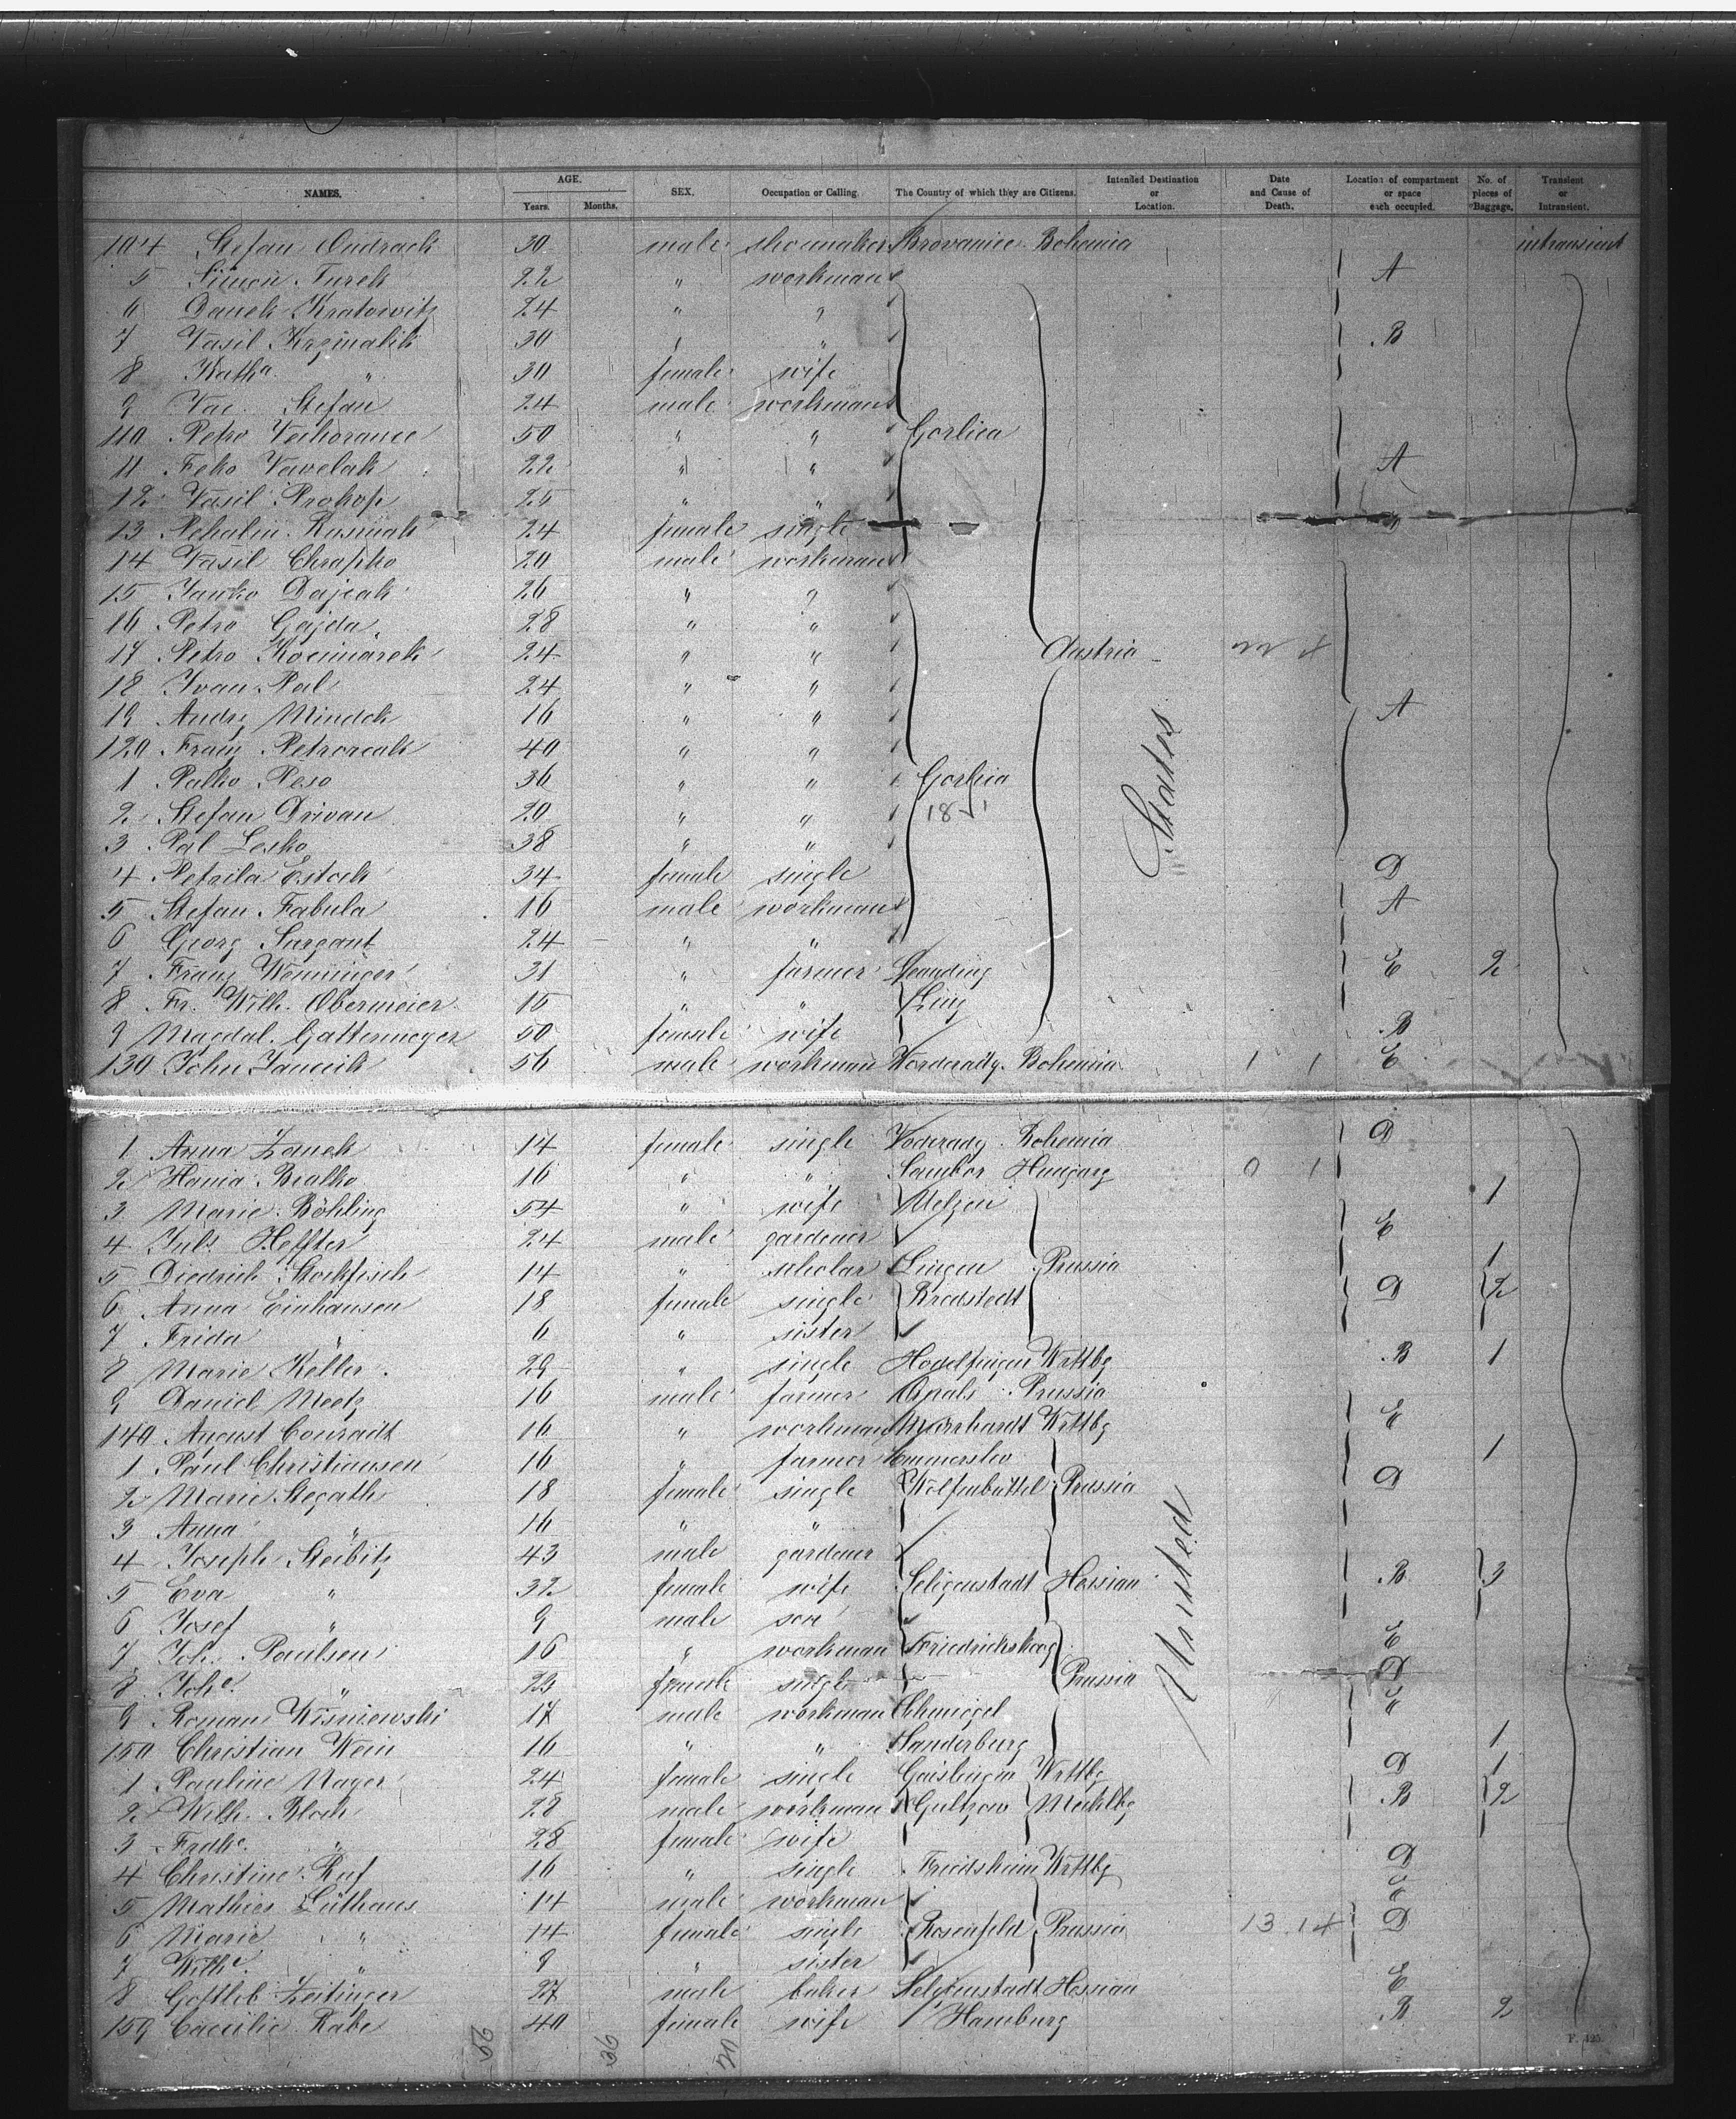 NAMES. AGE. Years. Months. SEX. Occupation or Calling. The Country of which they are Citizens. Intended Destination or Location. Date and Cause of Death. Location of compartment or space each occupied. No. of pieces of Baggage. Transient or Intransient.
104 Stefan Ondrack 30 male shoemaker Bohemia intransient
5 Simon Turek 22 " workman A
6 Danek Kratowitz 24 " "
7 Vasil 30 " " B
8 Kath^a " 30 female wife
9 Vac. Stefan 24 male workman
110 Petro 50 " " Gorlica
11 Feko Vavelak 22 " " A
12 Vasil Prokop 25 " "
13 24 female single "
14 Vasil Chrapko 20 male workman
15 Janko Dajcak 26 " "
16 Petro Gajda 28 " "
17 Petro 24 " " Austria
18 Ivan Pal 24 " "
19 Andrj Mindek 16 " " A
120 Franz 40 " "
1 Palko Peso 36 " " Gorlica
2 Stefan Drivan 20 " " 18
3 Pal Lesko 38 " "
4 Petrila Estock 34 female single D
5 Stefan Fabula 16 male workman A
6 Georg Surgant 24 " "
7 Franz Wenninger 31 " farmer E 2
8 Fr. Wilh. Obermeier 15 " " Linz
9 Magdal. Gattermeyer 50 female wife B
130 John Jancik 56 male workman Bohemia 1 1 E
States
1 Anna Zanek 14 female single Voderady Bohemia D
2 Hania Bialko 16 " " Sambor Hungary 0 1
3 Marie Böhling 54 " wife Uelzen 1
4 Jul^s Heffter 24 male gardener E
5 Diedrich Stockfisch 14 " scholar Lingen Prussia 1
6 Anna Einhausen 18 female single Bredstedt D 2
7 Frida " 6 " sister
8 Marie Keller 29 " single Wrttbg B 1
9 Daniel Meetz 16 male farmer Prussia
140 August Conradt 16 " workman Murrhardt Wrttbg E
1 Paul Christiansen 16 " farmer Emmerslev 1
2 Marie Stegath 18 female single Wolfenbüttel Prussia D
3 Anna " 16 " "
4 Joseph Steibitz 43 male gardener
5 Eva " 32 female wife Seligenstadt Hessian B 3
6 Josef " 9 male son
7 Joh. Paulsen 16 " workman Friedrichskoog E
8 Joh^e " 23 female single Prussia D
9 Roman Wisniewski 17 male workman E
150 Christian Wein 16 " " 1
1 Pauline Nager 24 female single Geislingen Wrttbg D 1
2 Wilh. Block 28 male workman Gültzow Mecklbg B 2
3 Frdk^e " 28 female wife
4 Christine Ruf 16 " single Wrttbg D
5 Mathies Lüthans 14 male workman E
6 Marie " 14 female single Rosenfeld Prussia 13 14 D
7 Wilh^e " 9 " sister
8 Gottlieb Zeitinger 27 male baker Selgenstadt Hessian E
159 Caecilie Rabe 40 female wife Hamburg B 2
United
56 36 20
F. 125.